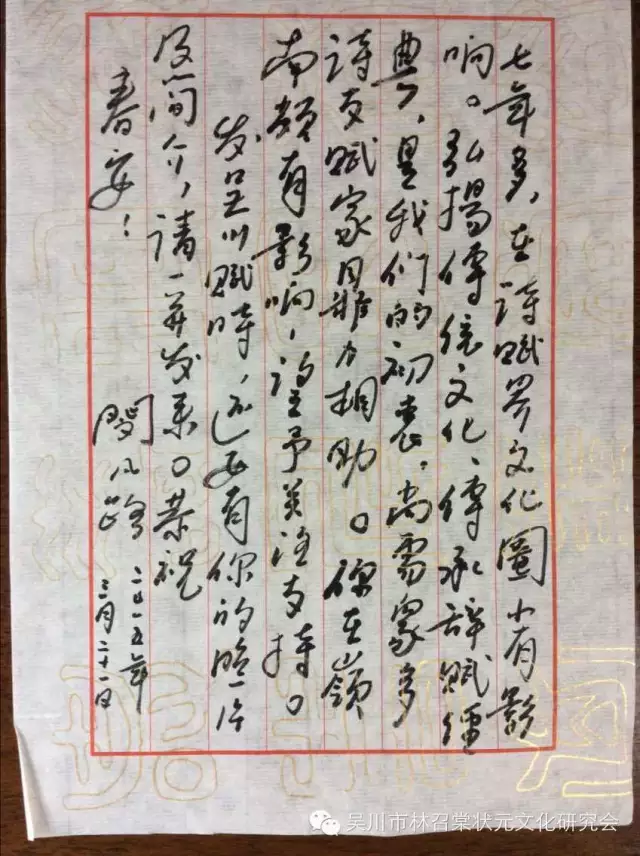 七年多，在诗赋界文化圈小有影
响。弘揚傳統文化、傳承辞赋經
典，是我们的初衷，尚需众多
诗友赋家用鼎力相助。你在嶺
南頗有影响，望予关注支持。
发呈川赋時，还要有你的照片
及简介，请一并发来。恭祝
春安！
闵凡路
二〇一五年
三月二十一日
吴川市林召棠状元文化研究会